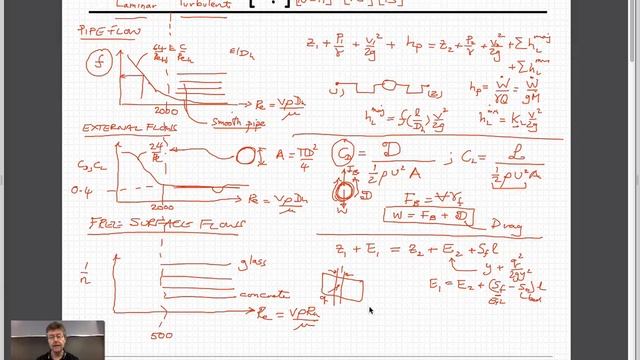 Laminar Turbulent
PIPE FLOW
f
64
Re
E/Dh
2000
Re = VρDh/μ
Smooth pipe
z₁ + P₁/γ + V₁²/2g + hp = z₂ + P₂/γ + V₂²/2g + Σ hL maj
+ Σ hL min
hp = Ẇ/γQ = Ẇ/gṀ
hL maj = f(l/Dh) V²/2g
hL min = KL V²/2g
EXTERNAL FLOWS
CD, CL
24/Re
0.4
2000
A = πD²/4
Re = VρD/μ
CD = D / ½ρU²A ; CL = L / ½ρU²A
FB
D
W
FB = ∀γf
W = FB + D
Drag
FREE SURFACE FLOWS
1/n
glass
concrete
500
Re = VρRh/μ
z₁ + E₁ = z₂ + E₂ + Sf l
y + q²/2gy²
E₁ = E₂ + (Sf - So) l